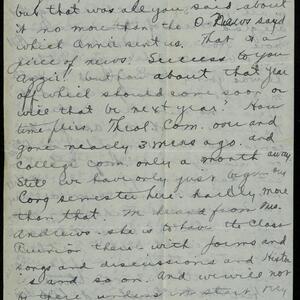 but that was all you said about
it no more than the O. News said
which Annie sent us. That is a
piece of news! Success to you
Aggie! but how about that year
off which should come soon or
will that be next year? How
time flies. Theol. Com. over and
gone nearly 3 mos ago. and
College com. only a month away.
Still we have only just begun our
Cong semester here. hardly more
than that. I heard from Mrs.
Andrews. she is to have the Class
Reunion there with forms and
songs and discussions and
and so on. And we will not
be there unless we start